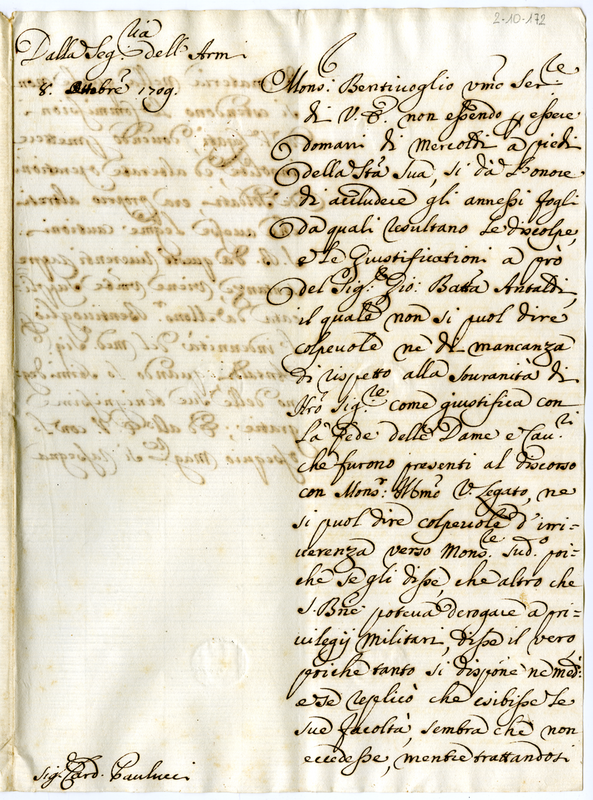 2-10-172
Dalla Seg.ria dell'Armi
8. Ottobre 1709.
Mons.r Bentivoglio vmo Ser.re
di V.E. non essendo p essere
domani di Mercoldì à piedi
della Stà Sua, si dà l'onore
di accludere gli annessi fogli
da quali resultano le discolpe,
e le Giustificationi à prò
del Sig.r Gio: Batta Antaldi,
il quale non si puol dire
colpeuole nè di mancanza
di rispetto alla Souranità di
Nrò Sig.re come giustifica con
la fede delle Dame e Cau.ri
che furono presenti al discorso
con Mons.r Illmo V. Legato, ne
si puol dire colpeuole d'irri=
uerenza verso Mons.re Sud.o poi=
chè se gli disse, che altro che
S. Bne poteua derogare a pri=
uilegij Militari, disse il vero,
poiche tanto si dispone ne med.i
e se replicò che esibisse le
sue facoltà, sembra che non
eccedesse, mentre trattandosi
Sig.r Card. Paulucci